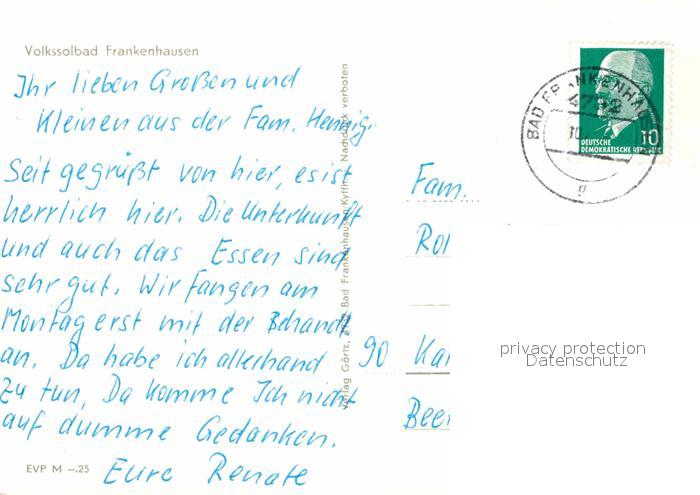 Volkssolbad Frankenhausen
Ihr lieben Großen und
Kleinen aus der Fam. Hennig.
Seit gegrüßt von hier, es ist
herrlich hier. Die Unterkunft
und auch das Essen sind
sehr gut. Wir fangen am
Montag erst mit der Behandl
an. Da habe ich allerhand
zu tun, Da komme Ich nicht
auf dumme Gedanken.
Eure Renate
EVP M —.25
Verlag Görtz, Bad Frankenhausen/Kyffh. Nachdruck verboten
BAD FRANKENHAUSEN
10
DEUTSCHE
DEMOKRATISCHE REPUBLIK
g
Fam.
Rol
90 Kar
Beet
privacy protection
Datenschutz